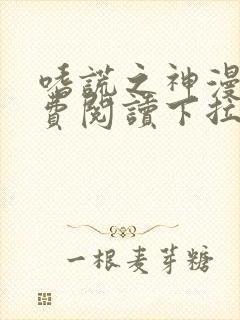 嗜謊之神漫
費閱讀下拉
一根麦芽糖